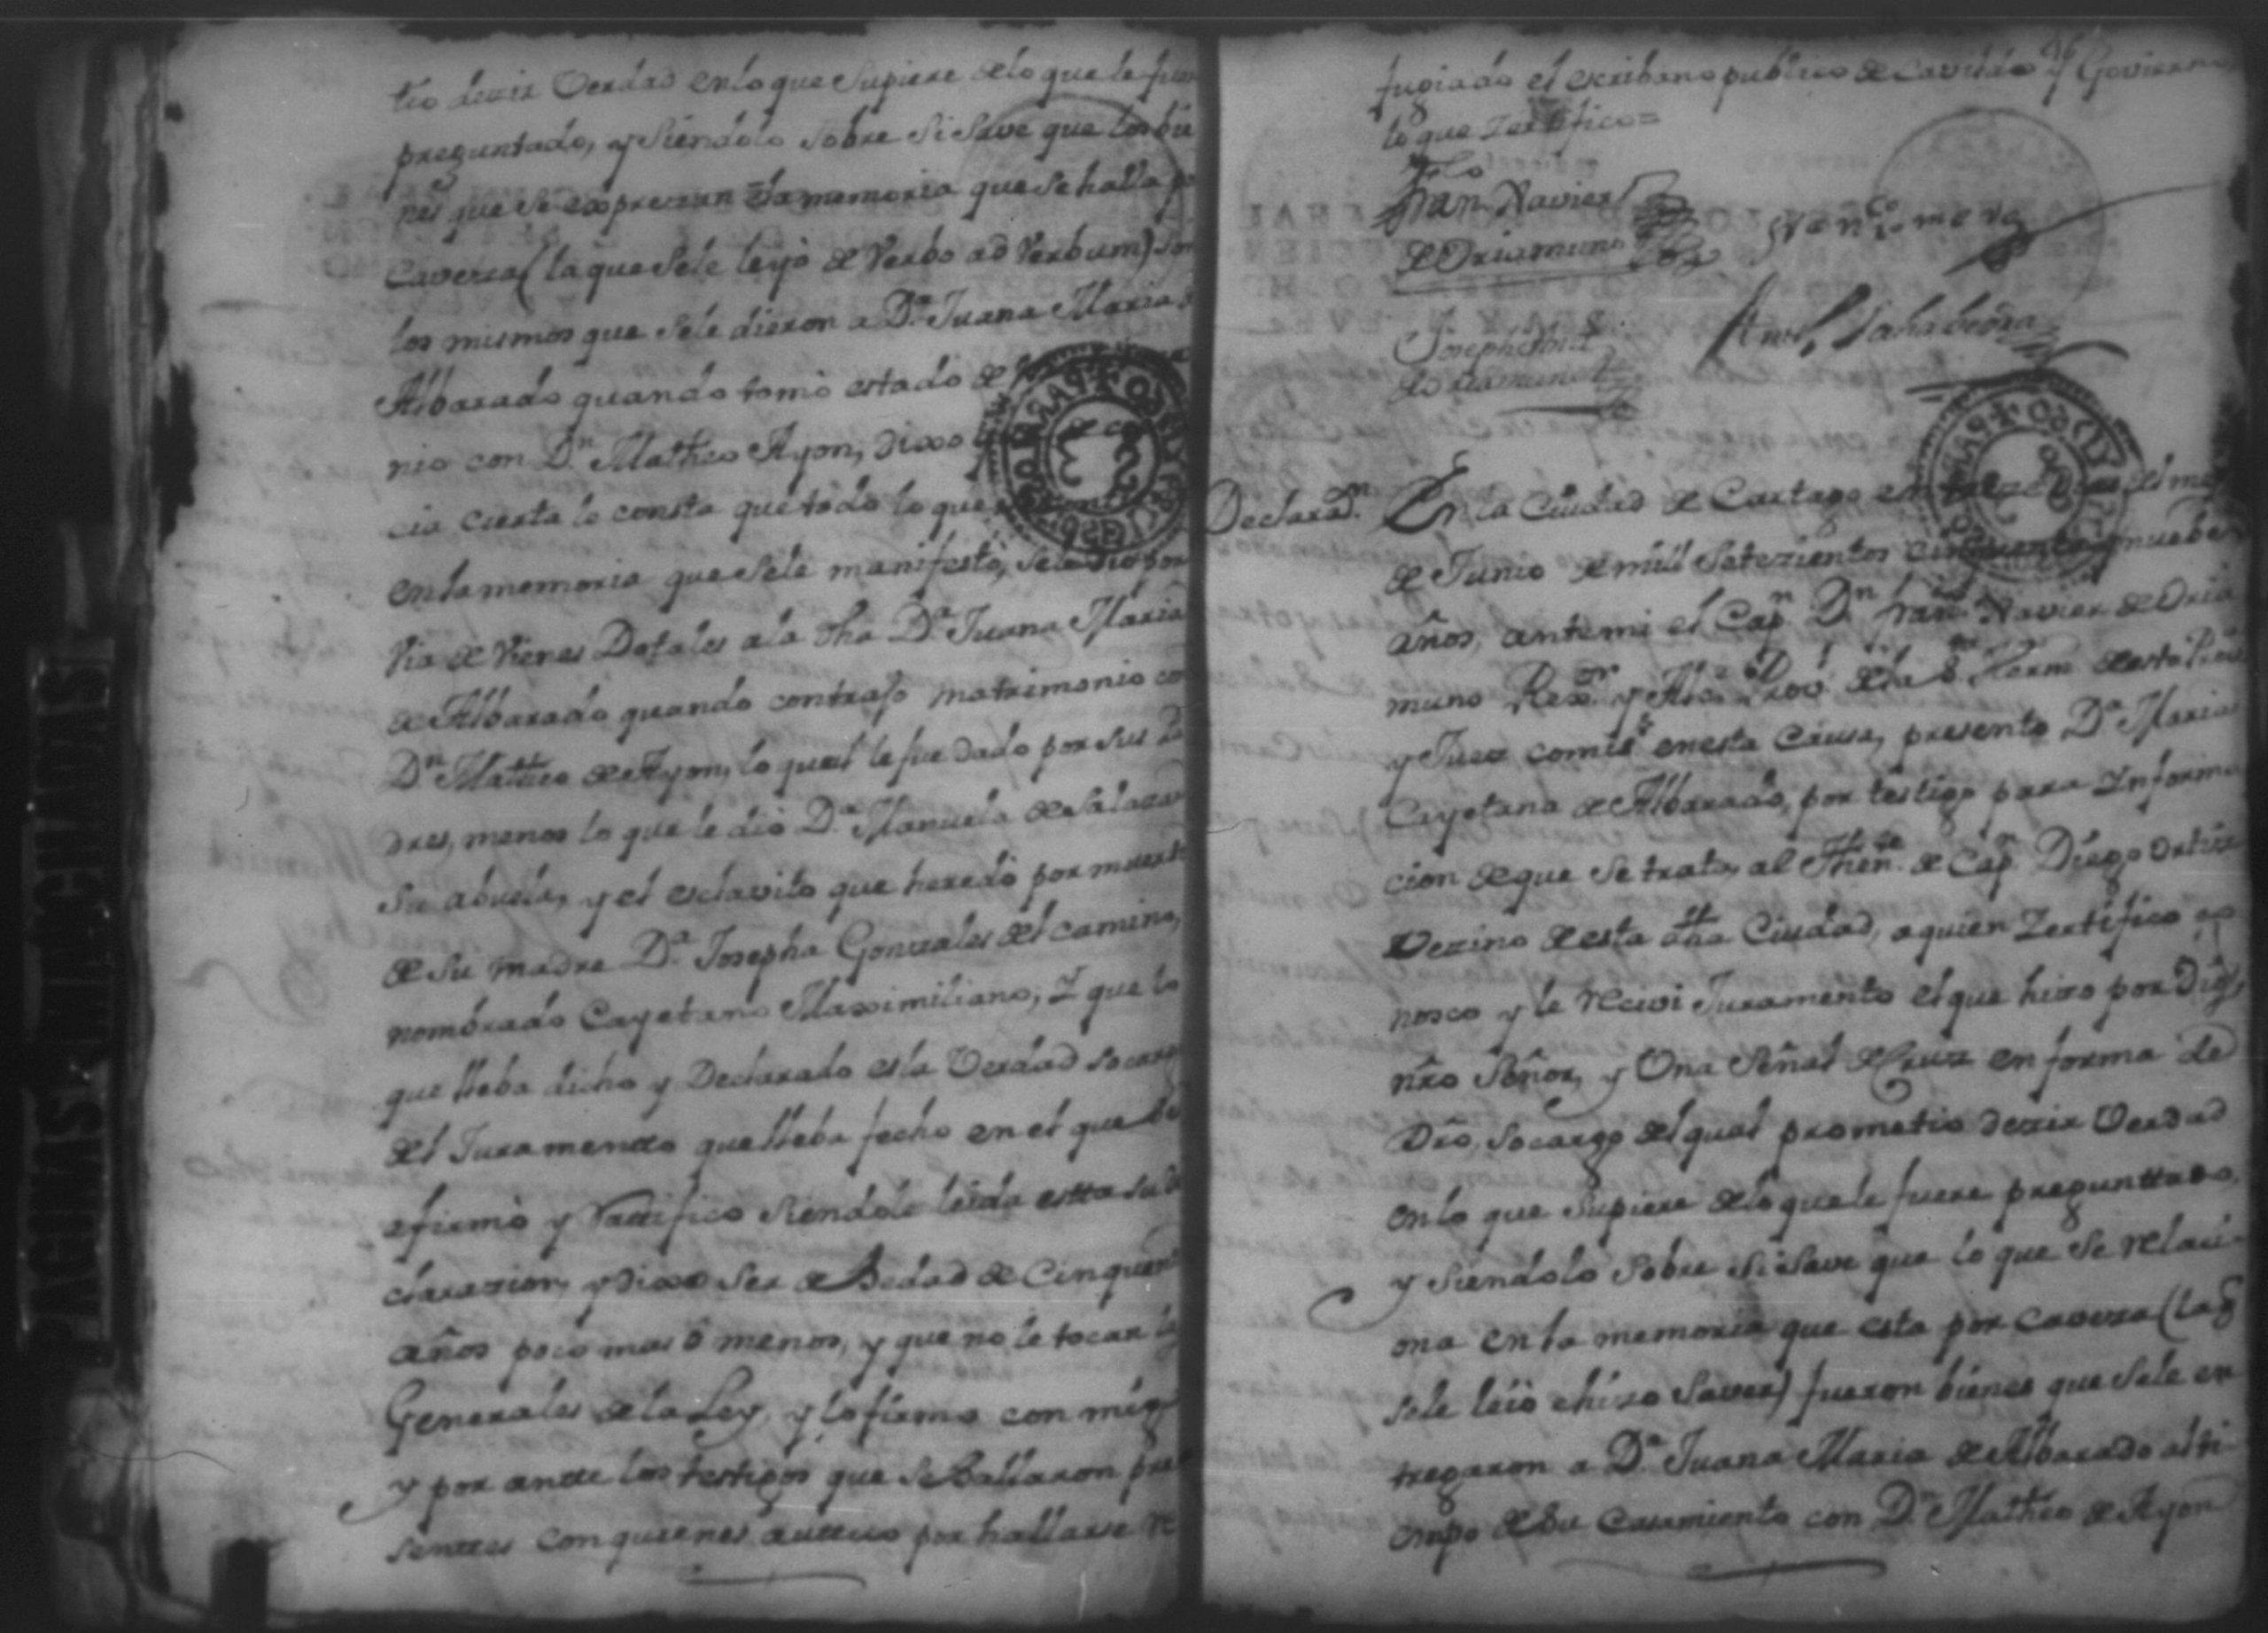 tio dezir Verdad en lo que Supiere de lo que le fue
preguntado, y Siendolo Sobre Si Save que los bie
nes que Se exprezan en la memoria que Se halla
Caveza (la que Sele leyò de Verbo ad Verbum) son
los mismos que Sele dieron a Dª Juana Maria
Albarado quando tomò estado de
nio con Dn Matheo Ayon, dixo
cia cierta le consta que todo lo que
en la memoria que Sele manifestò, Sele dio por
Via de Vienes Dotales a la dha Dª Juana Maria
de Albarado quando contrajo matrimonio co
Dn Matheo de Ayon, lo qual le fue dado por sus Pa
dres, menos lo que le dio Dª Manuela de Salazar
Su abuela, y el esclavito que heredò por muerte
de Su madre Dª Josepha Gonzales del camino,
nombrado Cayetano Maximiliano, Y que lo
que lleba dicho y Declarado es la Verdad so cargo
del Juramento que lleba fecho en el que se
afirmò y Rattificò Siendole leida estta su De
clarazion, y dixo Ser de hedad de Cinquenta
años poco mas ô menos, y que no le tocan las
Generales de la Ley, y lo firmo con migo
y por antte los testigos que Se hallaron pre
senttes con quienes auttuo por hallarse re
fugiado el escribano publico de Cavildo y Govierno
lo que Zertifico =
Fran Xavier
de Oriamuno
Joseph
de Oriamuno
Declarazn
En la Ciudad de Cartago en del mes
de Junio de mill Setezientos cinquenta y nuebe
años, ante mi el Capn Dn Fran Xavier de Oria
muno Rexor y Alce Provl de la Sta Hermd de esta Prova
y Juez comiso en esta Causa, presento Dª Maria
Cayetana de Albarado, por testigo para Informa
cion de que Se trata, al Thente de Capn Diego Ortiz
Vezino de esta dha Ciudad, a quien Zertifico co
nosco y le recivi Juramento el que hizo por Dios,
nro Señor, y Una Señal de Cruz en forma de
Dro, so cargo del qual prometio dezir Verdad
en lo que Supiere de lo que le fuere preguntado,
y Siendolo Sobre si Save que lo que Se relaci-
ona en la memoria que esta por caveza (la q
sele leiò e hizo Saver) fueron bienes que Sele en
tregaron a Dª Juana Maria de Albarado al ti-
empo de Su Casamiento con Dn Matheo de Ayon